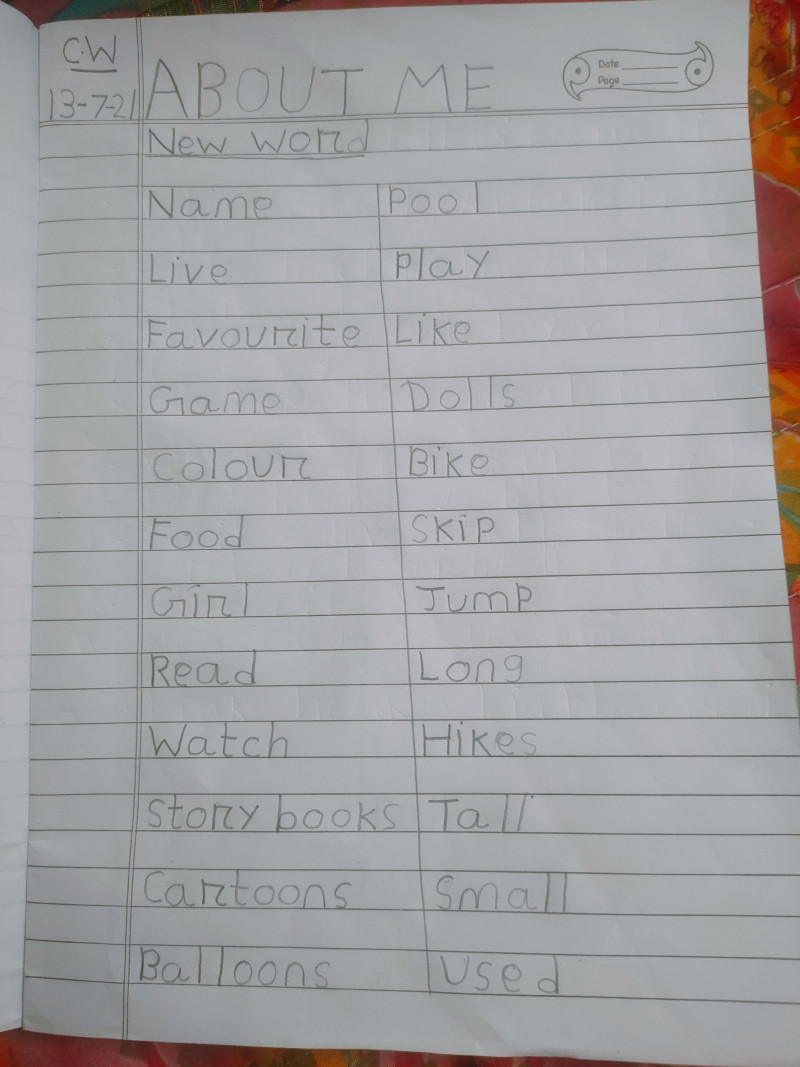 C.W
13-7-21 ABOUT ME
Date
Page
New word
Name Pool
Live Play
Favourite Like
Game Dolls
Colour Bike
Food Skip
Girl Jump
Read Long
Watch Hikes
Story books Tall
Cartoons Small
Balloons Used